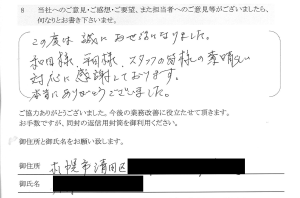 8 当社へのご意見・ご感想・ご要望、また担当者へのご意見等がございましたら、
何なりとお書き下さいませ。
この度は誠にお世話になりました。
和田様、平岡様、スタッフの皆様の素晴しい
対応に感謝しております。
本当にありがとうございました。
ご協力ありがとうございました。今後の業務改善に役立たせて頂きます。
お手数ですが、同封の返信用封筒を御利用ください。
御住所と御氏名をお願い致します。
御住所 札幌市清田区
御氏名